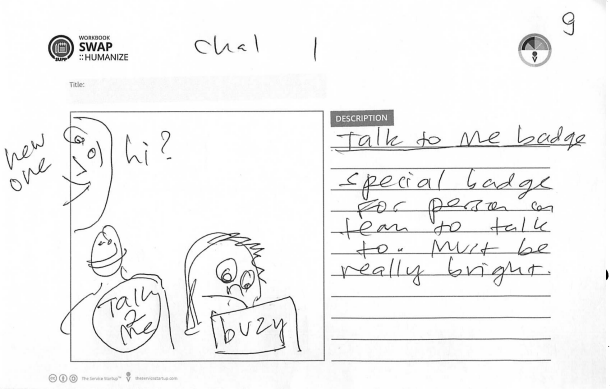 9
WORKBOOK
SWAP
::HUMANIZE
Chal 1
Title:
new
one
hi?
Talk
2
Me
buzy
DESCRIPTION
Talk to Me badge
special badge
For person on
team to talk
to. Must be
really bright.
The Service Startup™